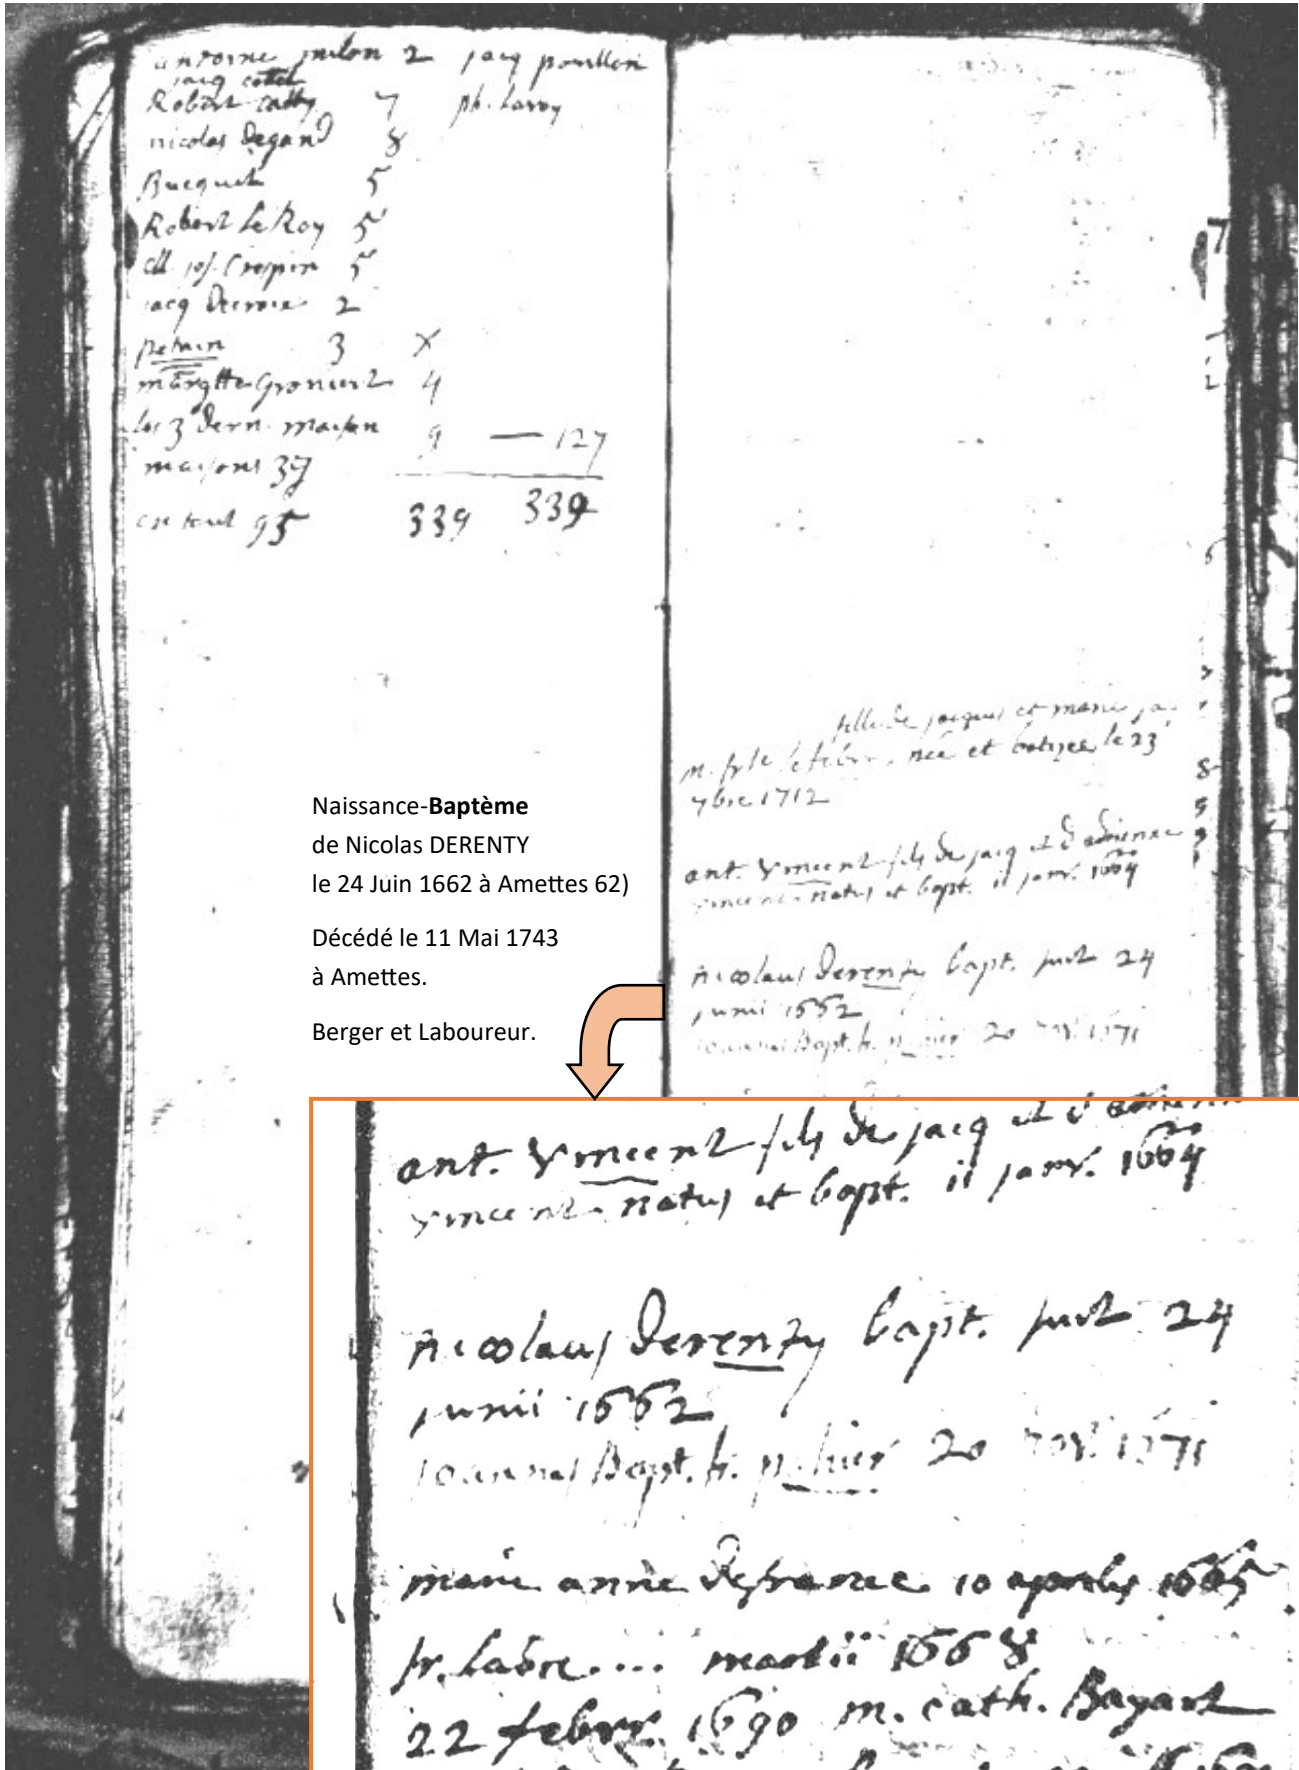 antoine milon 2 jacq poullen
jacq cottel
Robert catty 7 ph. Laroy
nicolas degand 8
Bucquet 5
Robert LeRoy 5
jos. Crespin 5
jacq 2
petain 3 X
margtte 4
les 3 dern. maison 9 — 127
maisons 37
en tout 95 339 339
fille de jacques et marie
née et batizee le 23
7bre 1712
ant. Vincent fils de jacq et d adrienne
vincent natus et bapt. ii janv. 1664
nicolaus Derenty bapt. fuit 24
junii 1662
joannes Bapt. 20 1671
Naissance-Baptème
de Nicolas DERENTY
le 24 Juin 1662 à Amettes 62)
Décédé le 11 Mai 1743
à Amettes.
Berger et Laboureur.
ant. Vincent fils de jacq et d
vincent natus et bapt. ii janv. 1664
nicolaus Derenty bapt. fuit 24
junii 1662
joannes Bapt. 20 1671
marie anne defrance 10 aprilis 1665
fr. Labre.... martii 1668
22 febrr. 1690 m. cath. Bayart